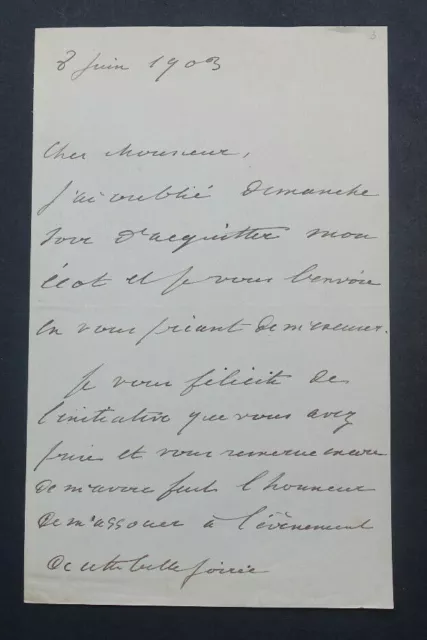 8 Juin 1903
Cher Monsieur,
J'ai oublié dimanche
soir d'acquitter mon
écot et je vous l'envoie
en vous priant de m'excuser.
Je vous félicite de
l'initiative que vous avez
prise et vous remercie encore
de m'avoir fait l'honneur
de m'associer à l'évènement
de cette belle soirée